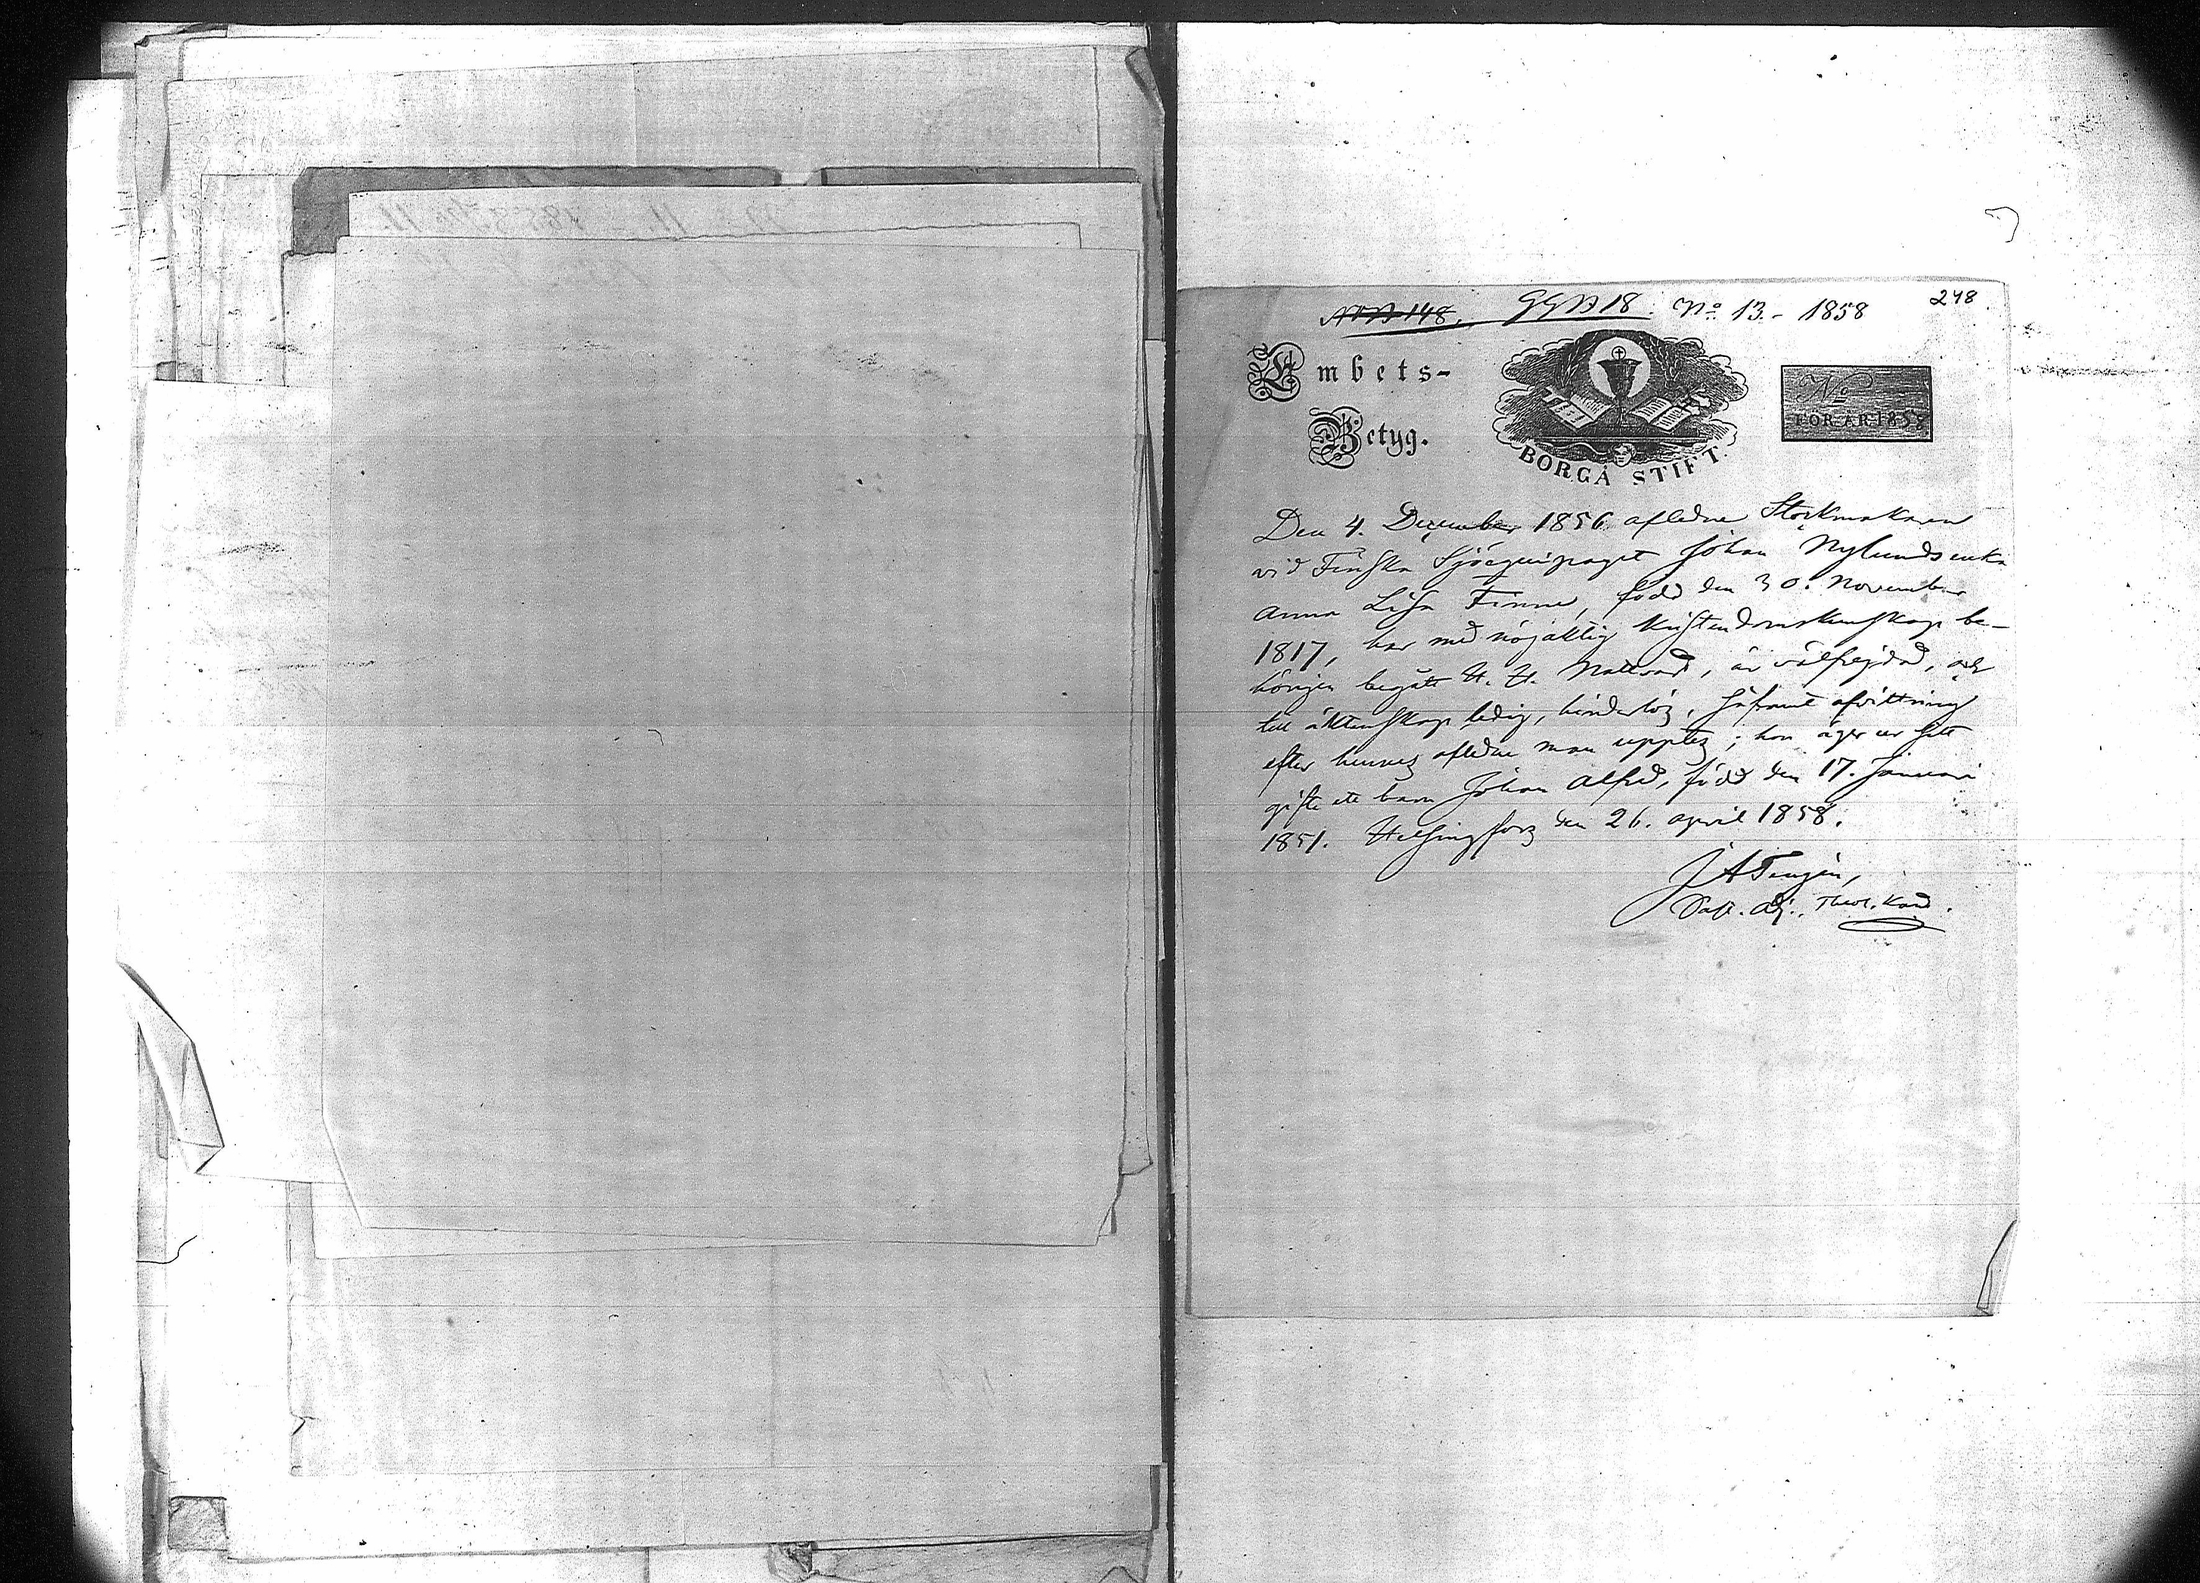 248
GGB18. No 13.- 1858
Embets-
Betyg.
BORGÅ STIFT.
No
FÖR ÅR 1858
Den 4. December 1856 aflidne Stockmakaren
vid Finska Sjöequipaget Johan Nylunds enka
Anna Lisa Finne, född den 30. November
1817, har med nöjaktig kristendomskunskap be-
hörigen begått H. H. Nattvard, är välfrejdad, och
till äktenskap ledig, hinderlös, såframt afvittring
efter hennes aflidne man upptes; hon äger ur sitt
gifte ett barn Johan Alfred, född den 17. Januari
1851. Helsingfors den 26. April 1858.
J A
Past. Adj., Theol. Kand.